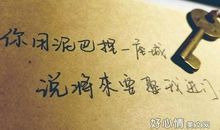 你用泥巴捏一座城
说将来要娶我进门
好心情
美文网